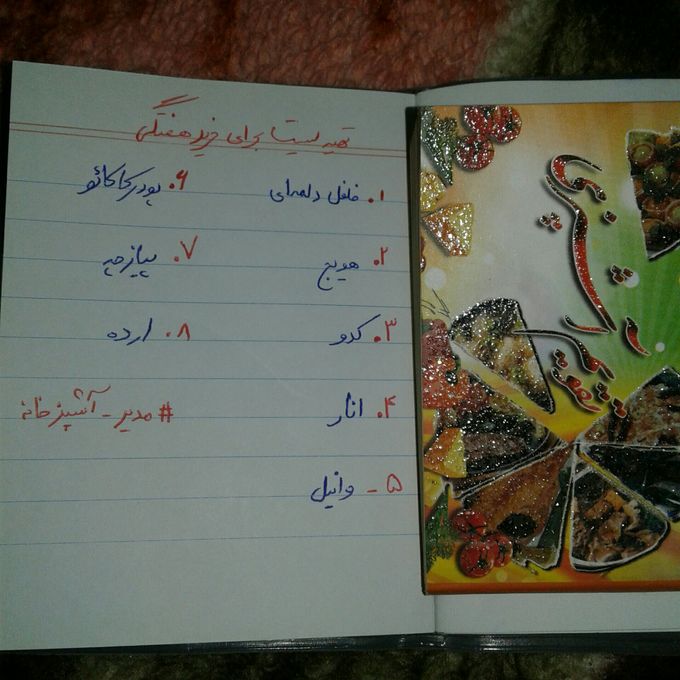 تهیه لیست برای خرید هفتگی
۱. فلفل دلمه‌ای
۲. هویج
۳. کدو
۴. انار
۵ - وانیل
۶. پودر کاکائو
۷. پیازچه
۸. ارده
#مدیر_آشپزخانه
آشپزی